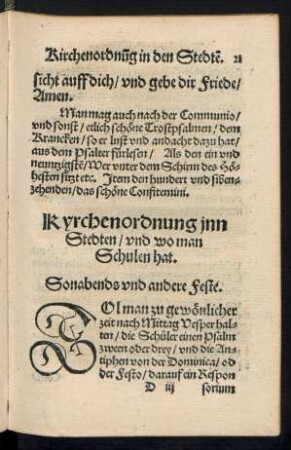 Kirchenordnūg in den Stedtē. 21
sicht auff dich / vnd gebe dir Friede /
Amen.
Man mag auch nach der Communio /
vnd sonst / etlich schöne Trostpsalmen / dem
Krancken / so er lust vnd andacht dazu hat /
aus dem Psalter fürlesen / Als den ein vnd
neuntzigste / Wer vnter dem Schirm des Hö-
hesten sitzt etc. Item den hundert vnd siben-
zehenden / das schöne Confitemini.
Kyrchenordnung jnn
Stedten / vnd wo man
Schulen hat.
Sonabends vnd andere Feste.
SOl man zu gewönlicher
zeit nach Mittag Vesper hal-
ten / die Schüler einen Psalm
zween oder drey / vnd die An-
tiphen von der Dominica / od
der Festo / darauf ein Respon
D iij sorium